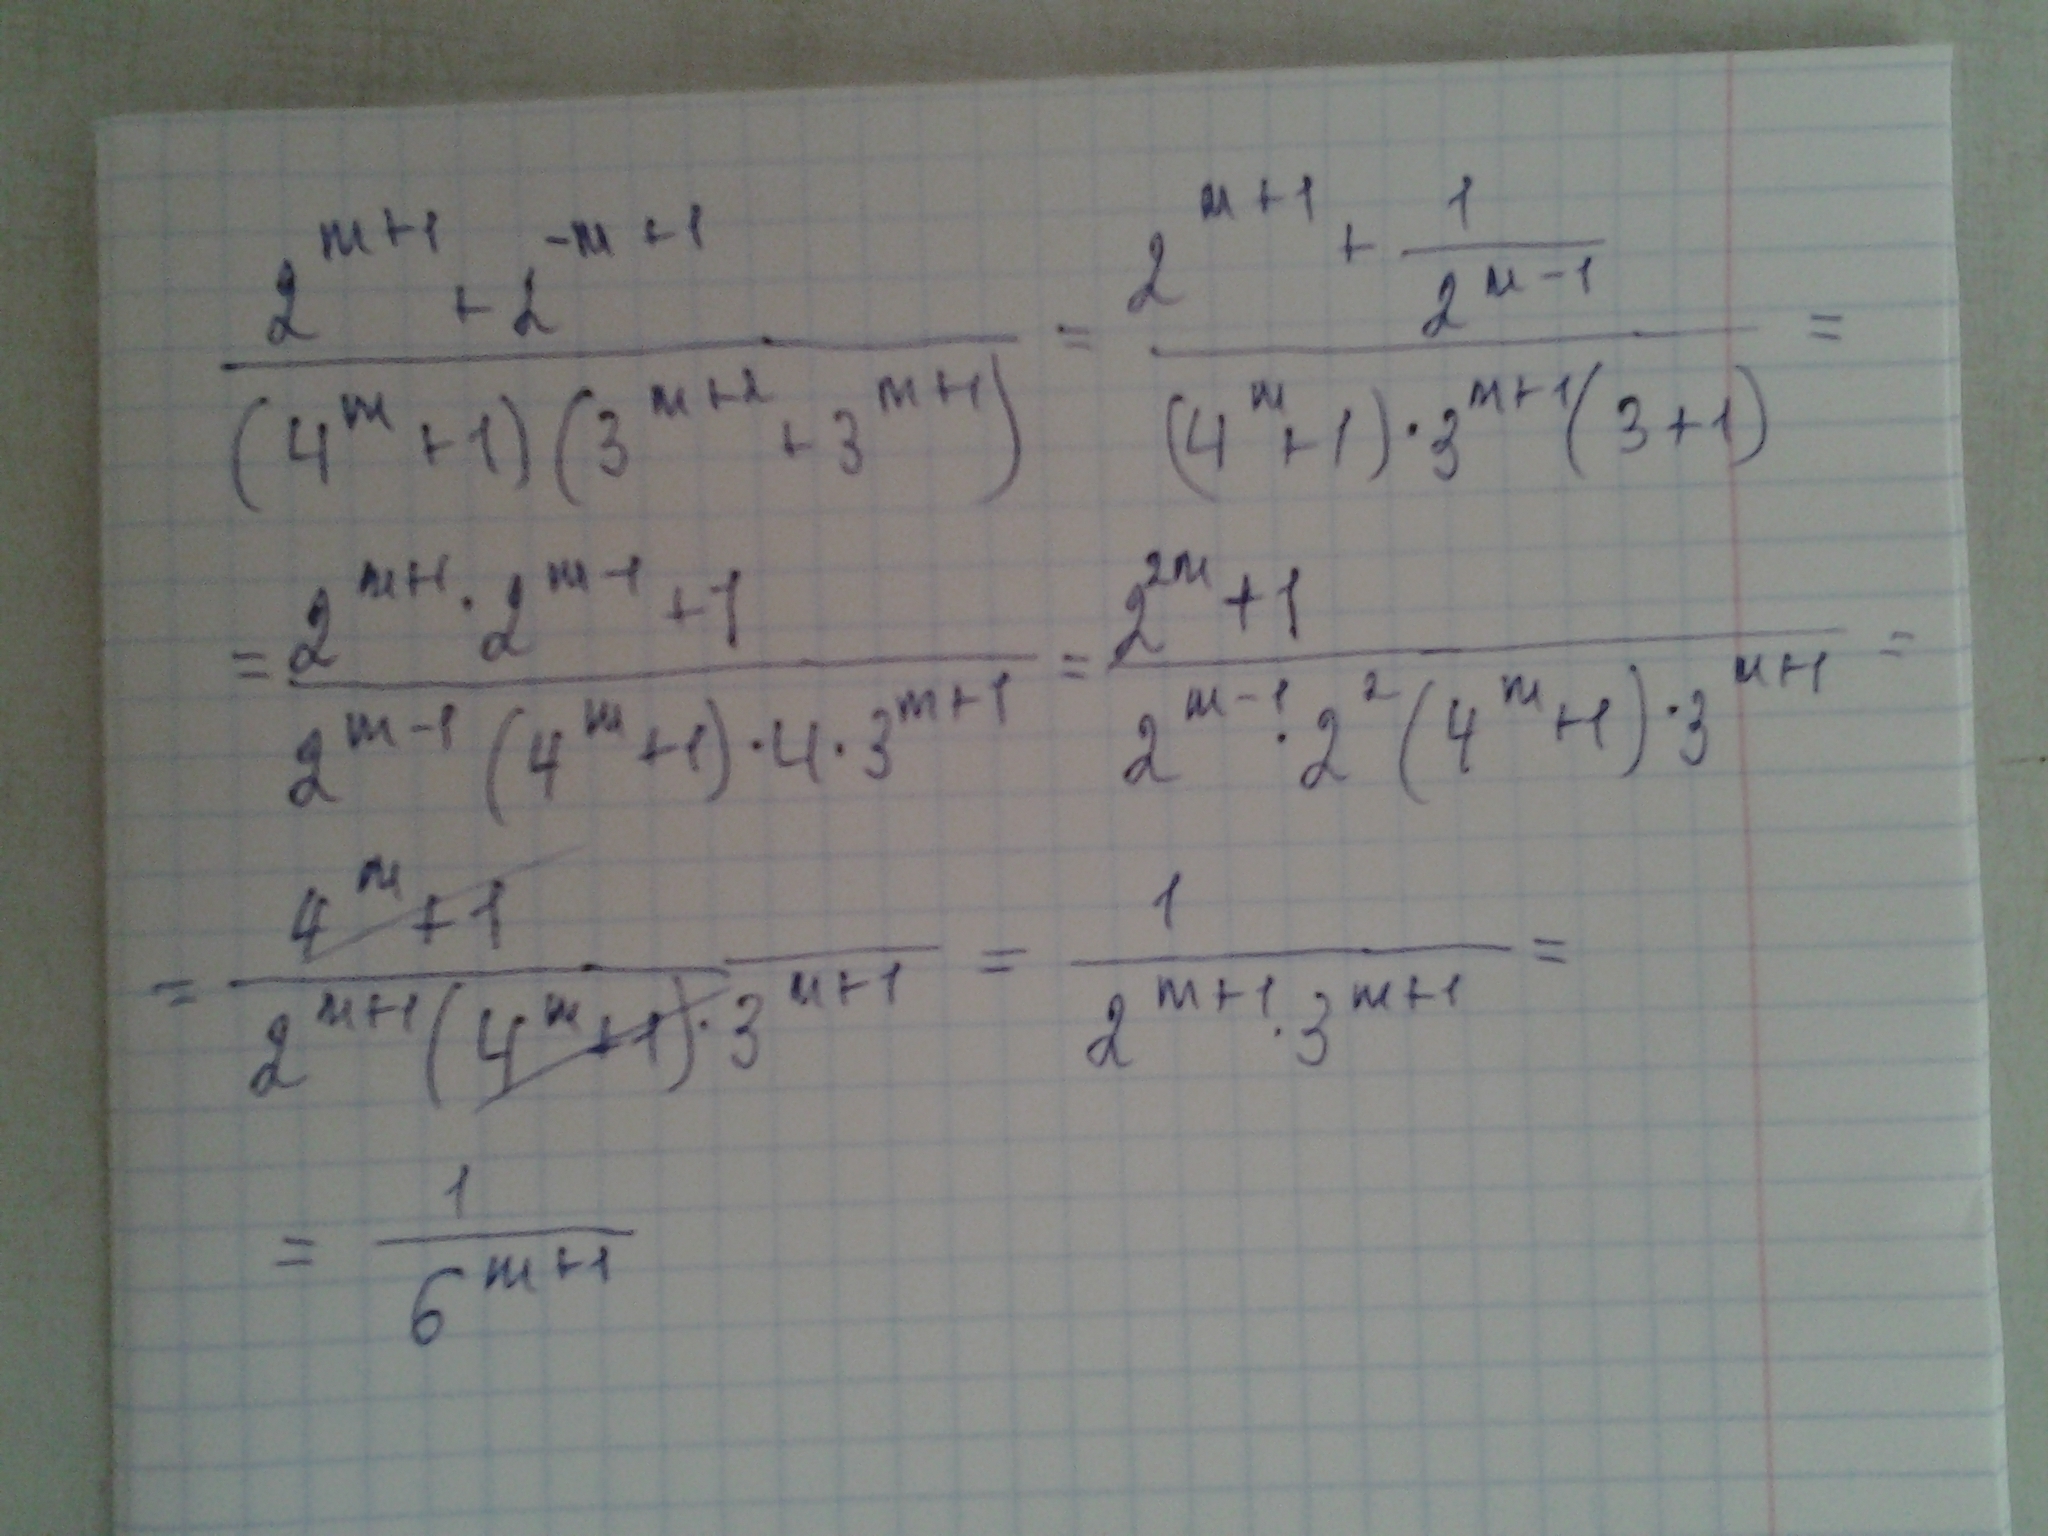 (2^(m+1) + 2^(-m+1)) / ((4^m + 1)(3^(m+2) + 3^(m+1))) = (2^(m+1) + 1/2^(m-1)) / ((4^m + 1) · 3^(m+1)(3+1)) =
= (2^(m+1) · 2^(m-1) + 1) / (2^(m-1)(4^m + 1) · 4 · 3^(m+1)) = (2^(2m) + 1) / (2^(m-1) · 2^2 (4^m + 1) · 3^(m+1)) =
= (4^m + 1) / (2^(m+1)(4^m + 1) · 3^(m+1)) = 1 / (2^(m+1) · 3^(m+1)) =
= 1 / 6^(m+1)